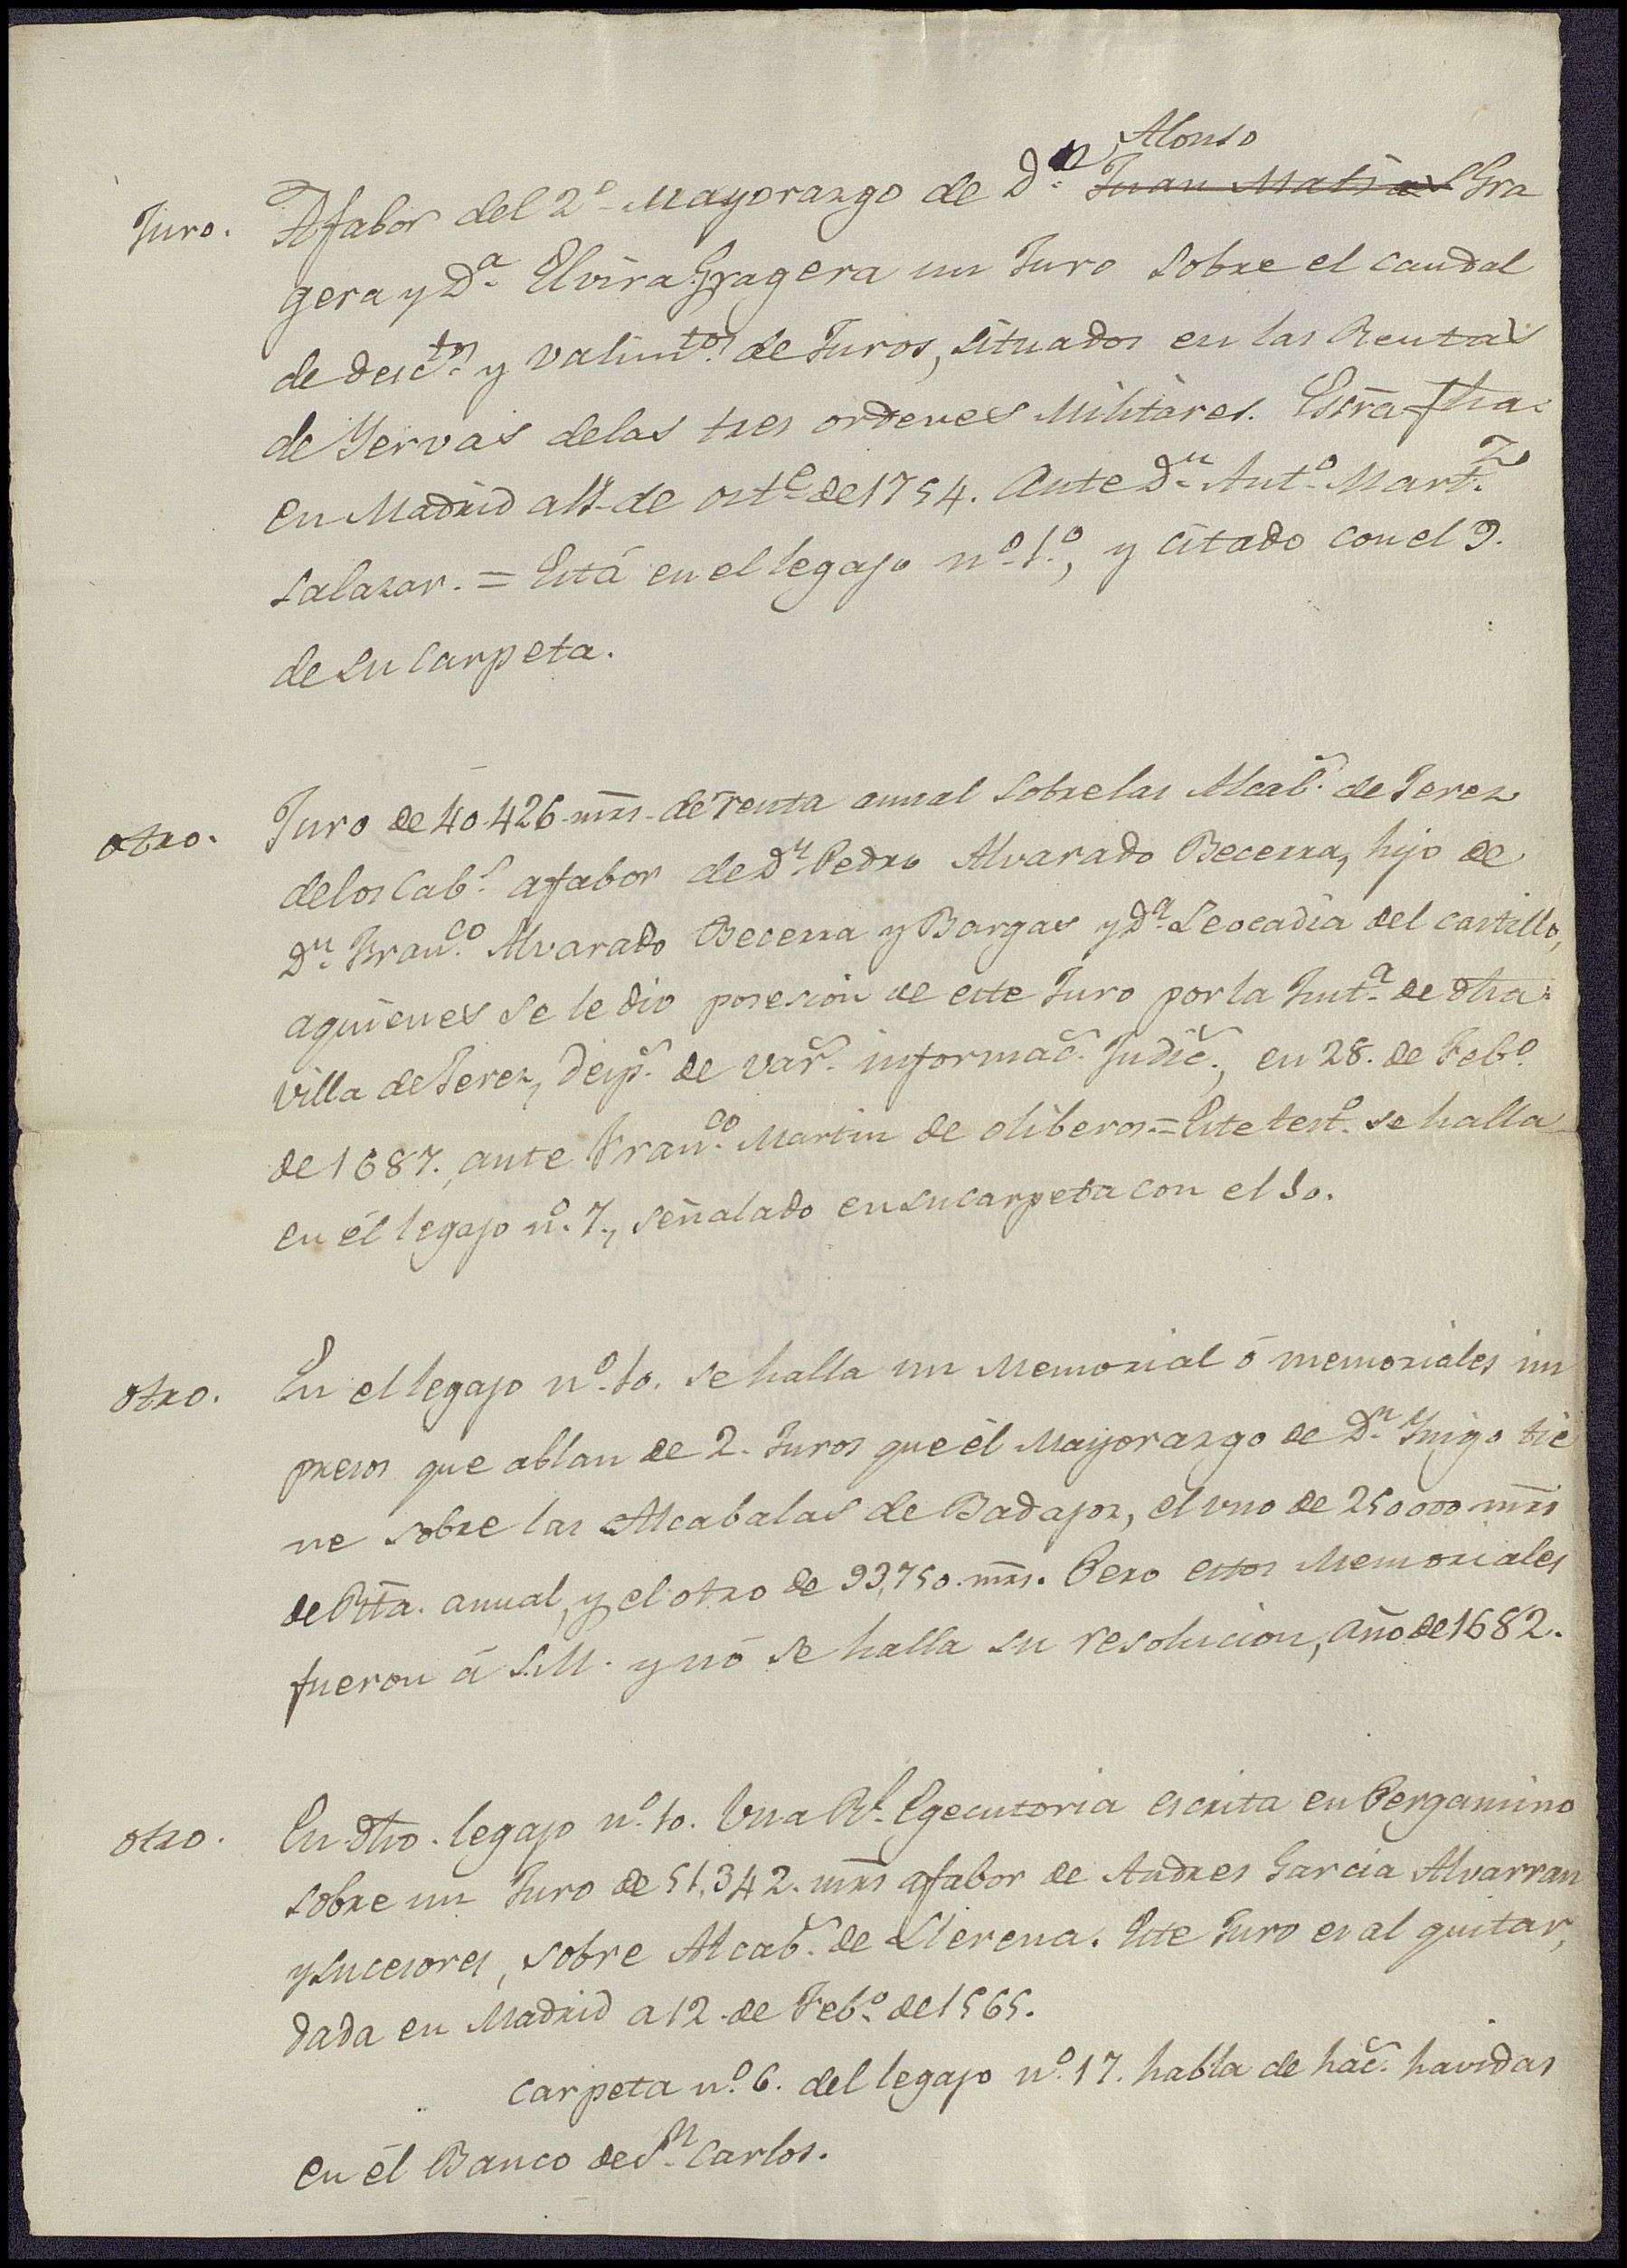 Alonso
Juro. A fabor del 2º Mayorazgo de Dn. Juan Matias Gra
gera y Dª Elvira Gragera un Juro sobre el caudal
de desctos. y valimtos. de Juros, situados en las Rentas
de Yervas delas tres ordenes Militares. Escrã. fha.
en Madrid a de octe. de 1754. Ante Dn. Antº Martz.
Salazar. = Está en el legajo nº 1º, y citado con el 9.
de su carpeta.
otro. Juro de 40.426 mrs. de renta anual sobre las Alcabs. de Jerez
delos Cabs. a fabor de Dn. Pedro Alvarado Becerra, hijo de
Dn. Franco. Alvarado Becerra y Bargas y Dª Leocadia del castillo,
aquienes se le dio posesion de este Juro por la Justª de dha.
villa de Jerez, desps. de vars. informacs. Judics., en 28. de Febº
de 1687., ante Franco. Martin de oliberos = Este testº se halla
en él legajo nº 7., señalado en su carpeta con el 10.
otro. En el legajo nº 10. se halla un Memorial ó memoriales im
presos que ablan de 2. Juros que él Mayorazgo de Dn. Yñigo tie
ne sobre las Alcabalas de Badajoz, el uno de 250000 mrs
de Rtã. anual, y el otro de 93,750. mrs. Pero estos Memoriales
fueron á S.M. y nó se halla su resolucion, año de 1682.
otro. En dho. legajo nº 10. Una Rl. Egecutoria escrita en Pergamino
sobre un Juro de 51,342. mrs a fabor de Andres Garcia Alvarran
y sucesores, sobre Alcabs. de Llerena. Este Juro es al quitar,
dada en Madrid a 12. de Febº de 1565.
carpeta nº 6. del legajo nº 17. habla de hacs. havidas
en él Banco de Sn. Carlos.